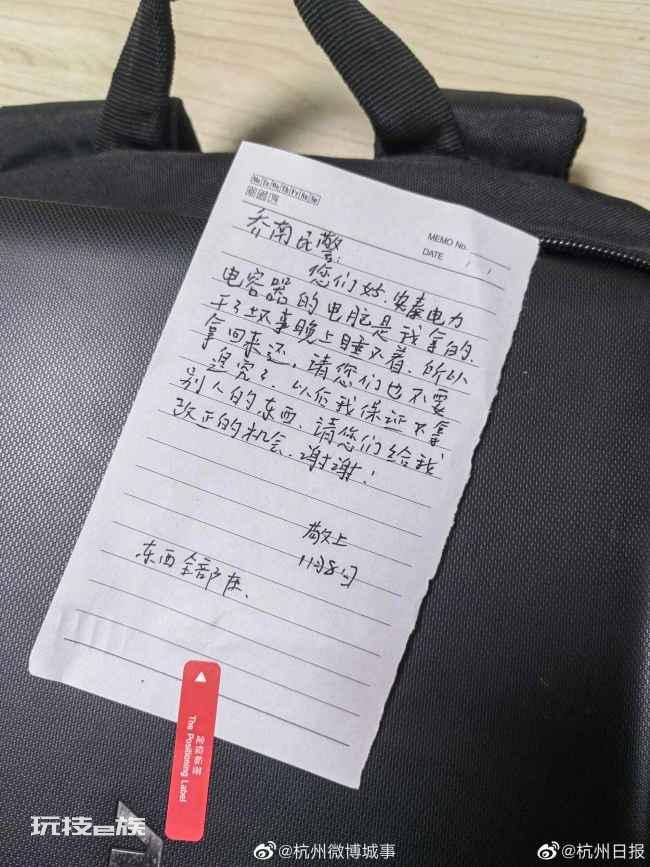 Mo Tu We Th Fr Sa Su
MEMO No.
DATE / /
乔南民警:
您们好.安泰电力
电容器的电脑是我拿的.
干了坏事晚上睡不着.所以
拿回来还,请您们也不要
追究了.以后我保证不拿
别人的东西、请您们给我
改正的机会.谢谢!
敬上
11月8日
东西全部在.
The Positioning Label
玩技e族
@杭州微博城事
@杭州日报